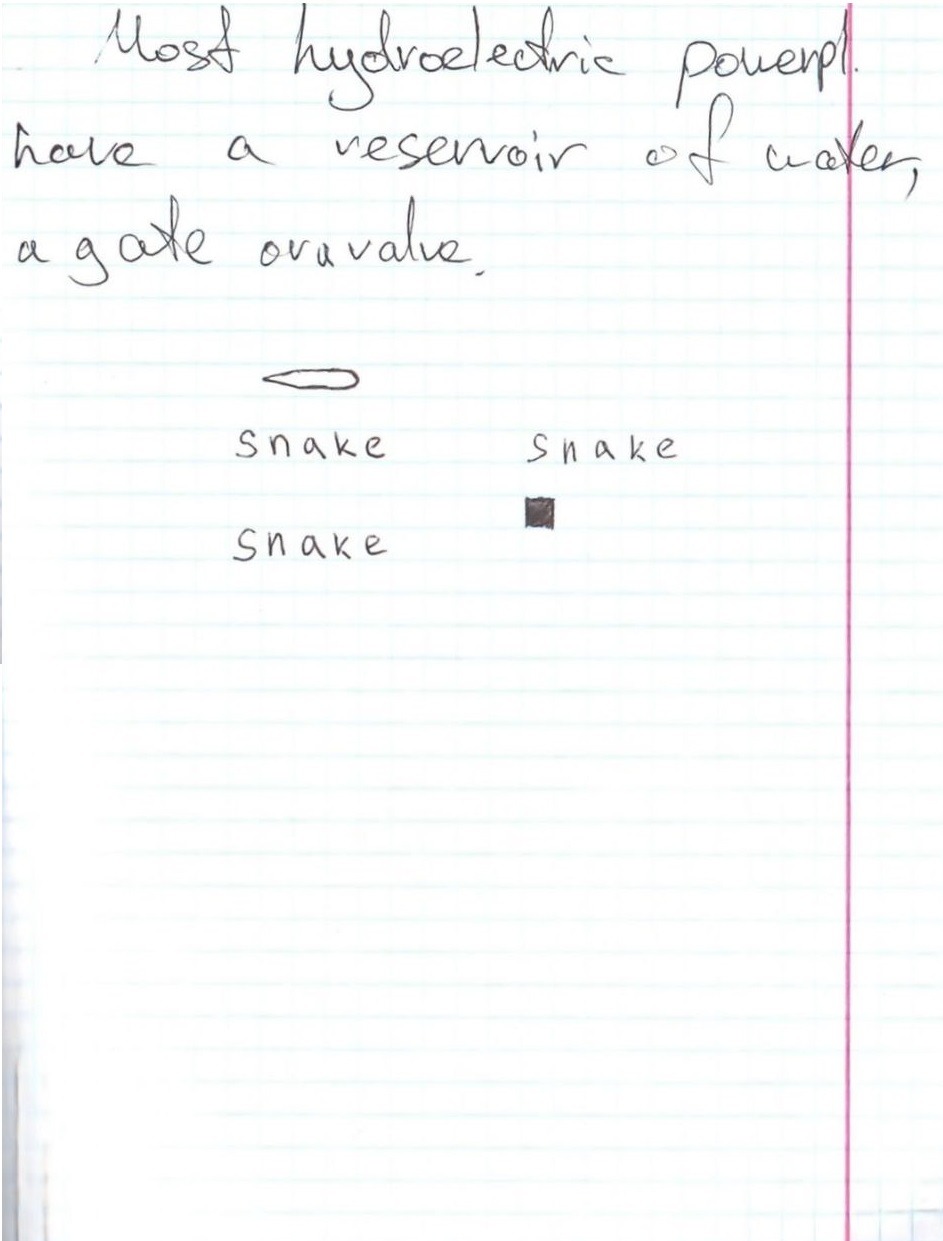 Most hydroelectric powerpl.
have a reservoir of water,
a gate or a valve.
snake snake
snake